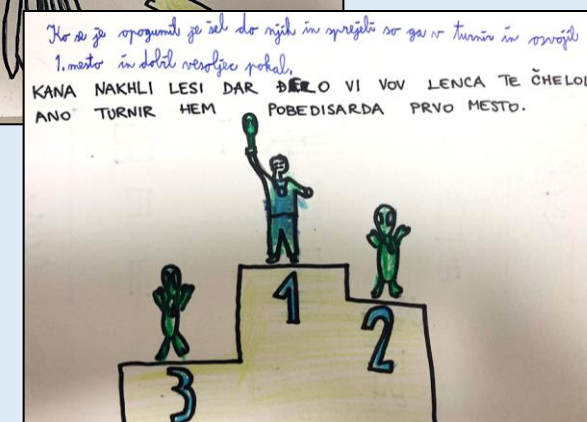 Ko se je opogumil je šel do njih in sprejeli so ga v turnir in osvojil
1. mesto in dobil vesoljec pokal.
KANA NAKHLI LESI DAR ĐELO VI VOV LENCA TE ČHELOL
ANO TURNIR HEM POBEDISARDA PRVO MESTO.
1
2
3